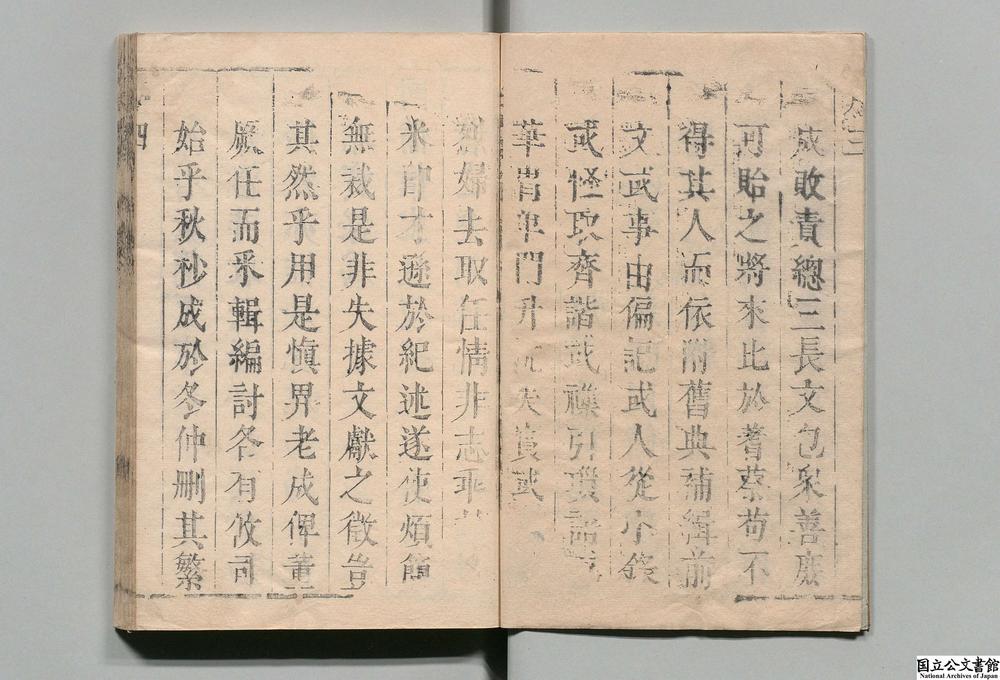 成敗責總三長文包衆善庶
可貽之將來比於蓍蔡苟不
得其人而依附舊典補緝前
文或事由偏記或人從小錄
或怪取齊諧或襍引璅語
華冑 門升 失實或
烈婦去取任情非志乖
米卽才遜於紀述遂使煩簡
無裁是非失據文獻之徵豈
其然乎用是愼畀老成俾董
厥任而釆輯編討各有攸司
始乎秋杪成於冬仲刪其繁
三
四
国立公文書館
National Archives of Japan